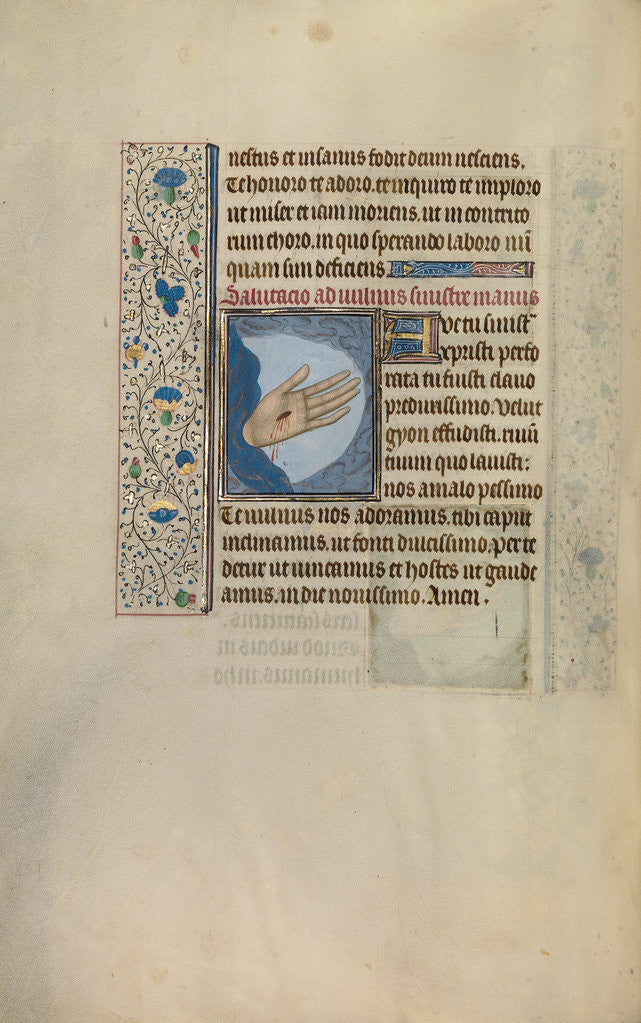 nestus et insanus fodit deum nesciens.
Te honoro te adoro. te inquiro te imploro
ut miser et iam moriens. ut in contrito
rum choro. in quo sperando laboro nū
quam sim deficiens
Salutacio ad vulnus sinistre manus
Ave tu sinistra
expristi perfo
rata tu fuisti clavo
predurissimo. velut
gyon effudisti. rivū
tuum quo lavisti:
nos a malo pessimo
Te vulnus nos adoramus. tibi caput
inclinamus. ut fonti dulcissimo. per te
detur ut vincamus et hostes ut gaude
amus. in die novissimo. Amen.